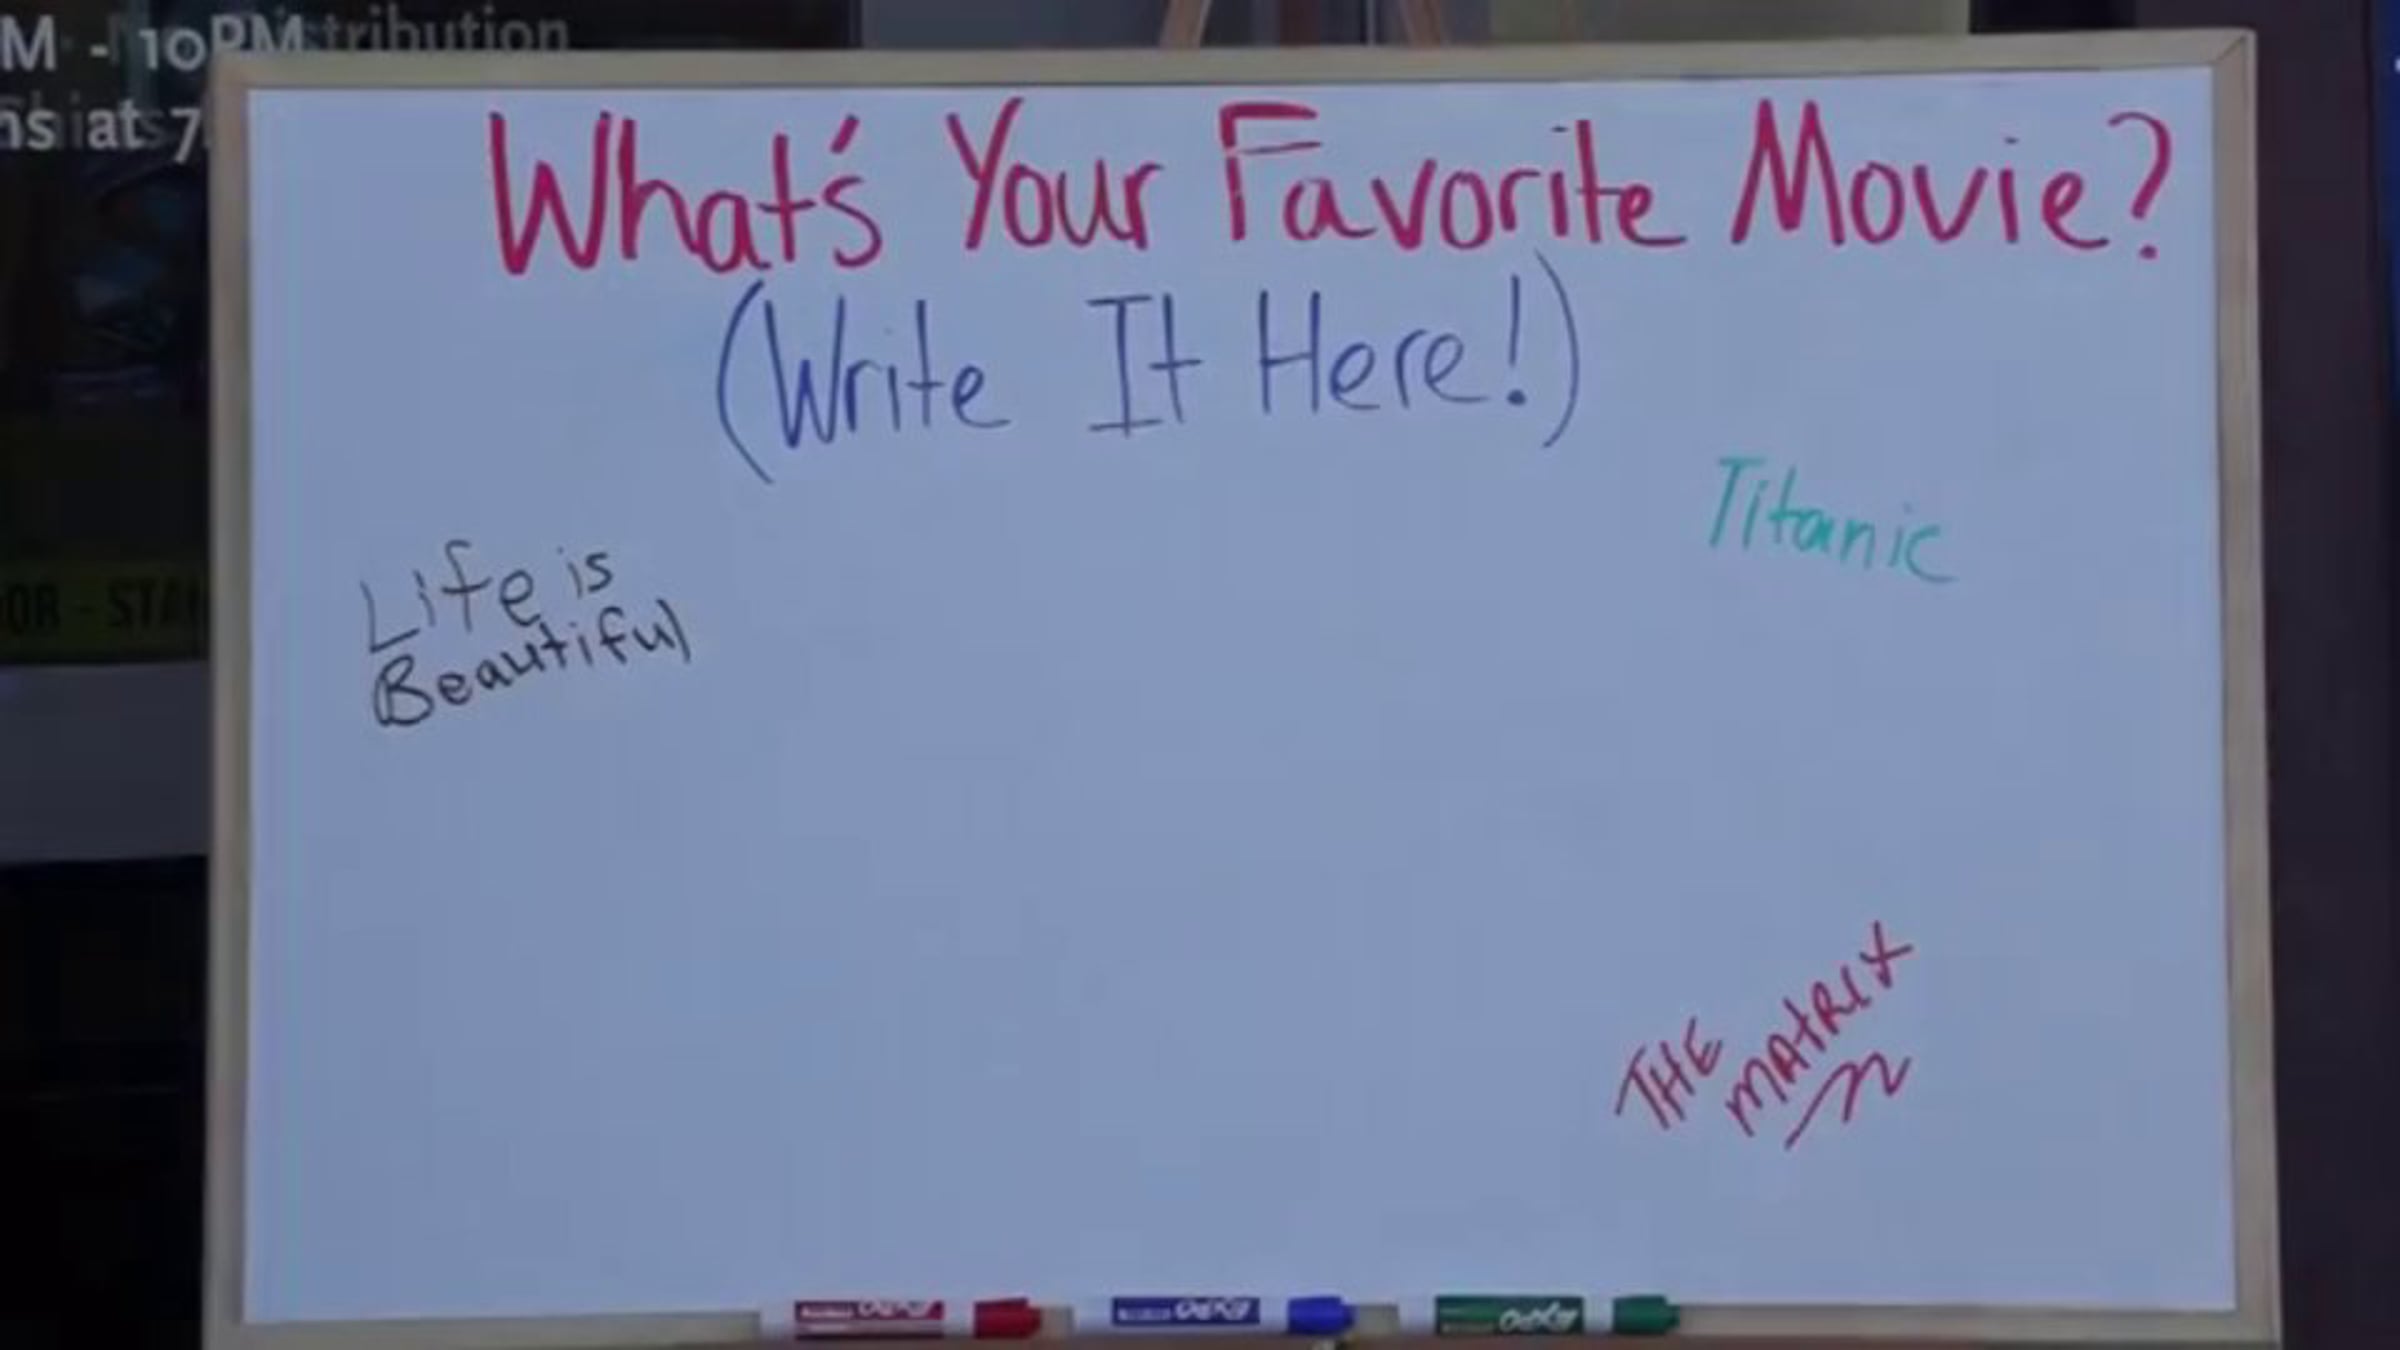 M - 10PM
stribution
at 7
OR - STAN
What's Your Favorite Movie?
(Write It Here!)
Titanic
Life is
Beautiful
THE
MATRIX
EXPO
EXPO
EXPO